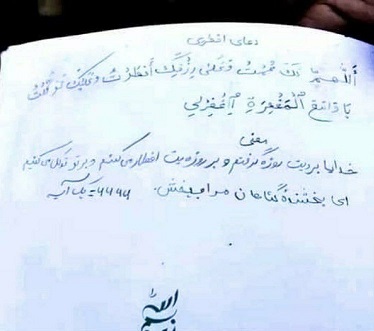 دعای افطری
أللهمّ لك صُمتُ وَعَلىٰ رِزْقِكَ أَفطَرْتُ وَعَلَيْكَ تَوَكَّلْتُ
يَا وَاسِعَ الْمَغْفِرَةِ اِغْفِرْلِي
معنی
خدایا برایت روزه گرفتم و بر روزیت افطار می‌کنم و بر تو توکل می‌کنیم
ای بخشندهٔ گناهان مرا ببخش.
الله